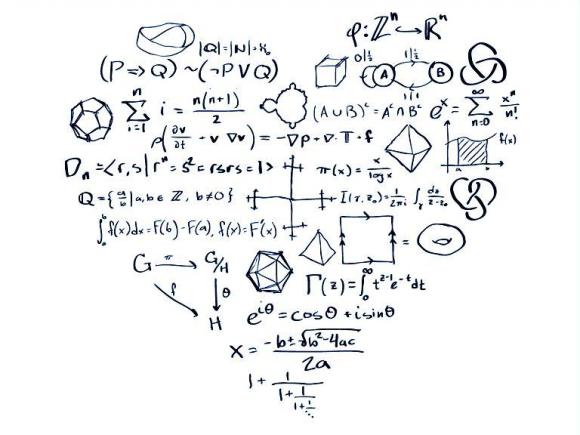 φ: ℤⁿ ↪ ℝⁿ
|ℚ|=|ℕ|=ℵ₀
(P ⇒ Q) ~ (¬P ∨ Q)
0|½ 1|½
A B
1|1
n Σ i=1 i = n(n+1)/2
(A∪B)ᶜ = Aᶜ∩Bᶜ
eˣ = ∞ Σ n=0 xⁿ/n!
ρ(∂v/∂t + v·∇v) = -∇p + ∇·T + f
f(x)
a b
Dₙ = <r, s | rⁿ = s² = rsrs = 1>
π(x) = x/log x
ℚ = {a/b | a, b ∈ ℤ, b≠0}
I(γ, z₀) = 1/2πi ∫γ dz/z-z₀
∫ₐᵇ f(x)dx = F(b) - F(a), f(x) = F'(x)
=
G π G/H
f θ
H
Γ(z) = ∫₀^∞ t^(z-1) e^(-t) dt
e^(iθ) = cosθ + isinθ
x = -b±√b²-4ac / 2a
1 + 1/1+1/1+1/⋱